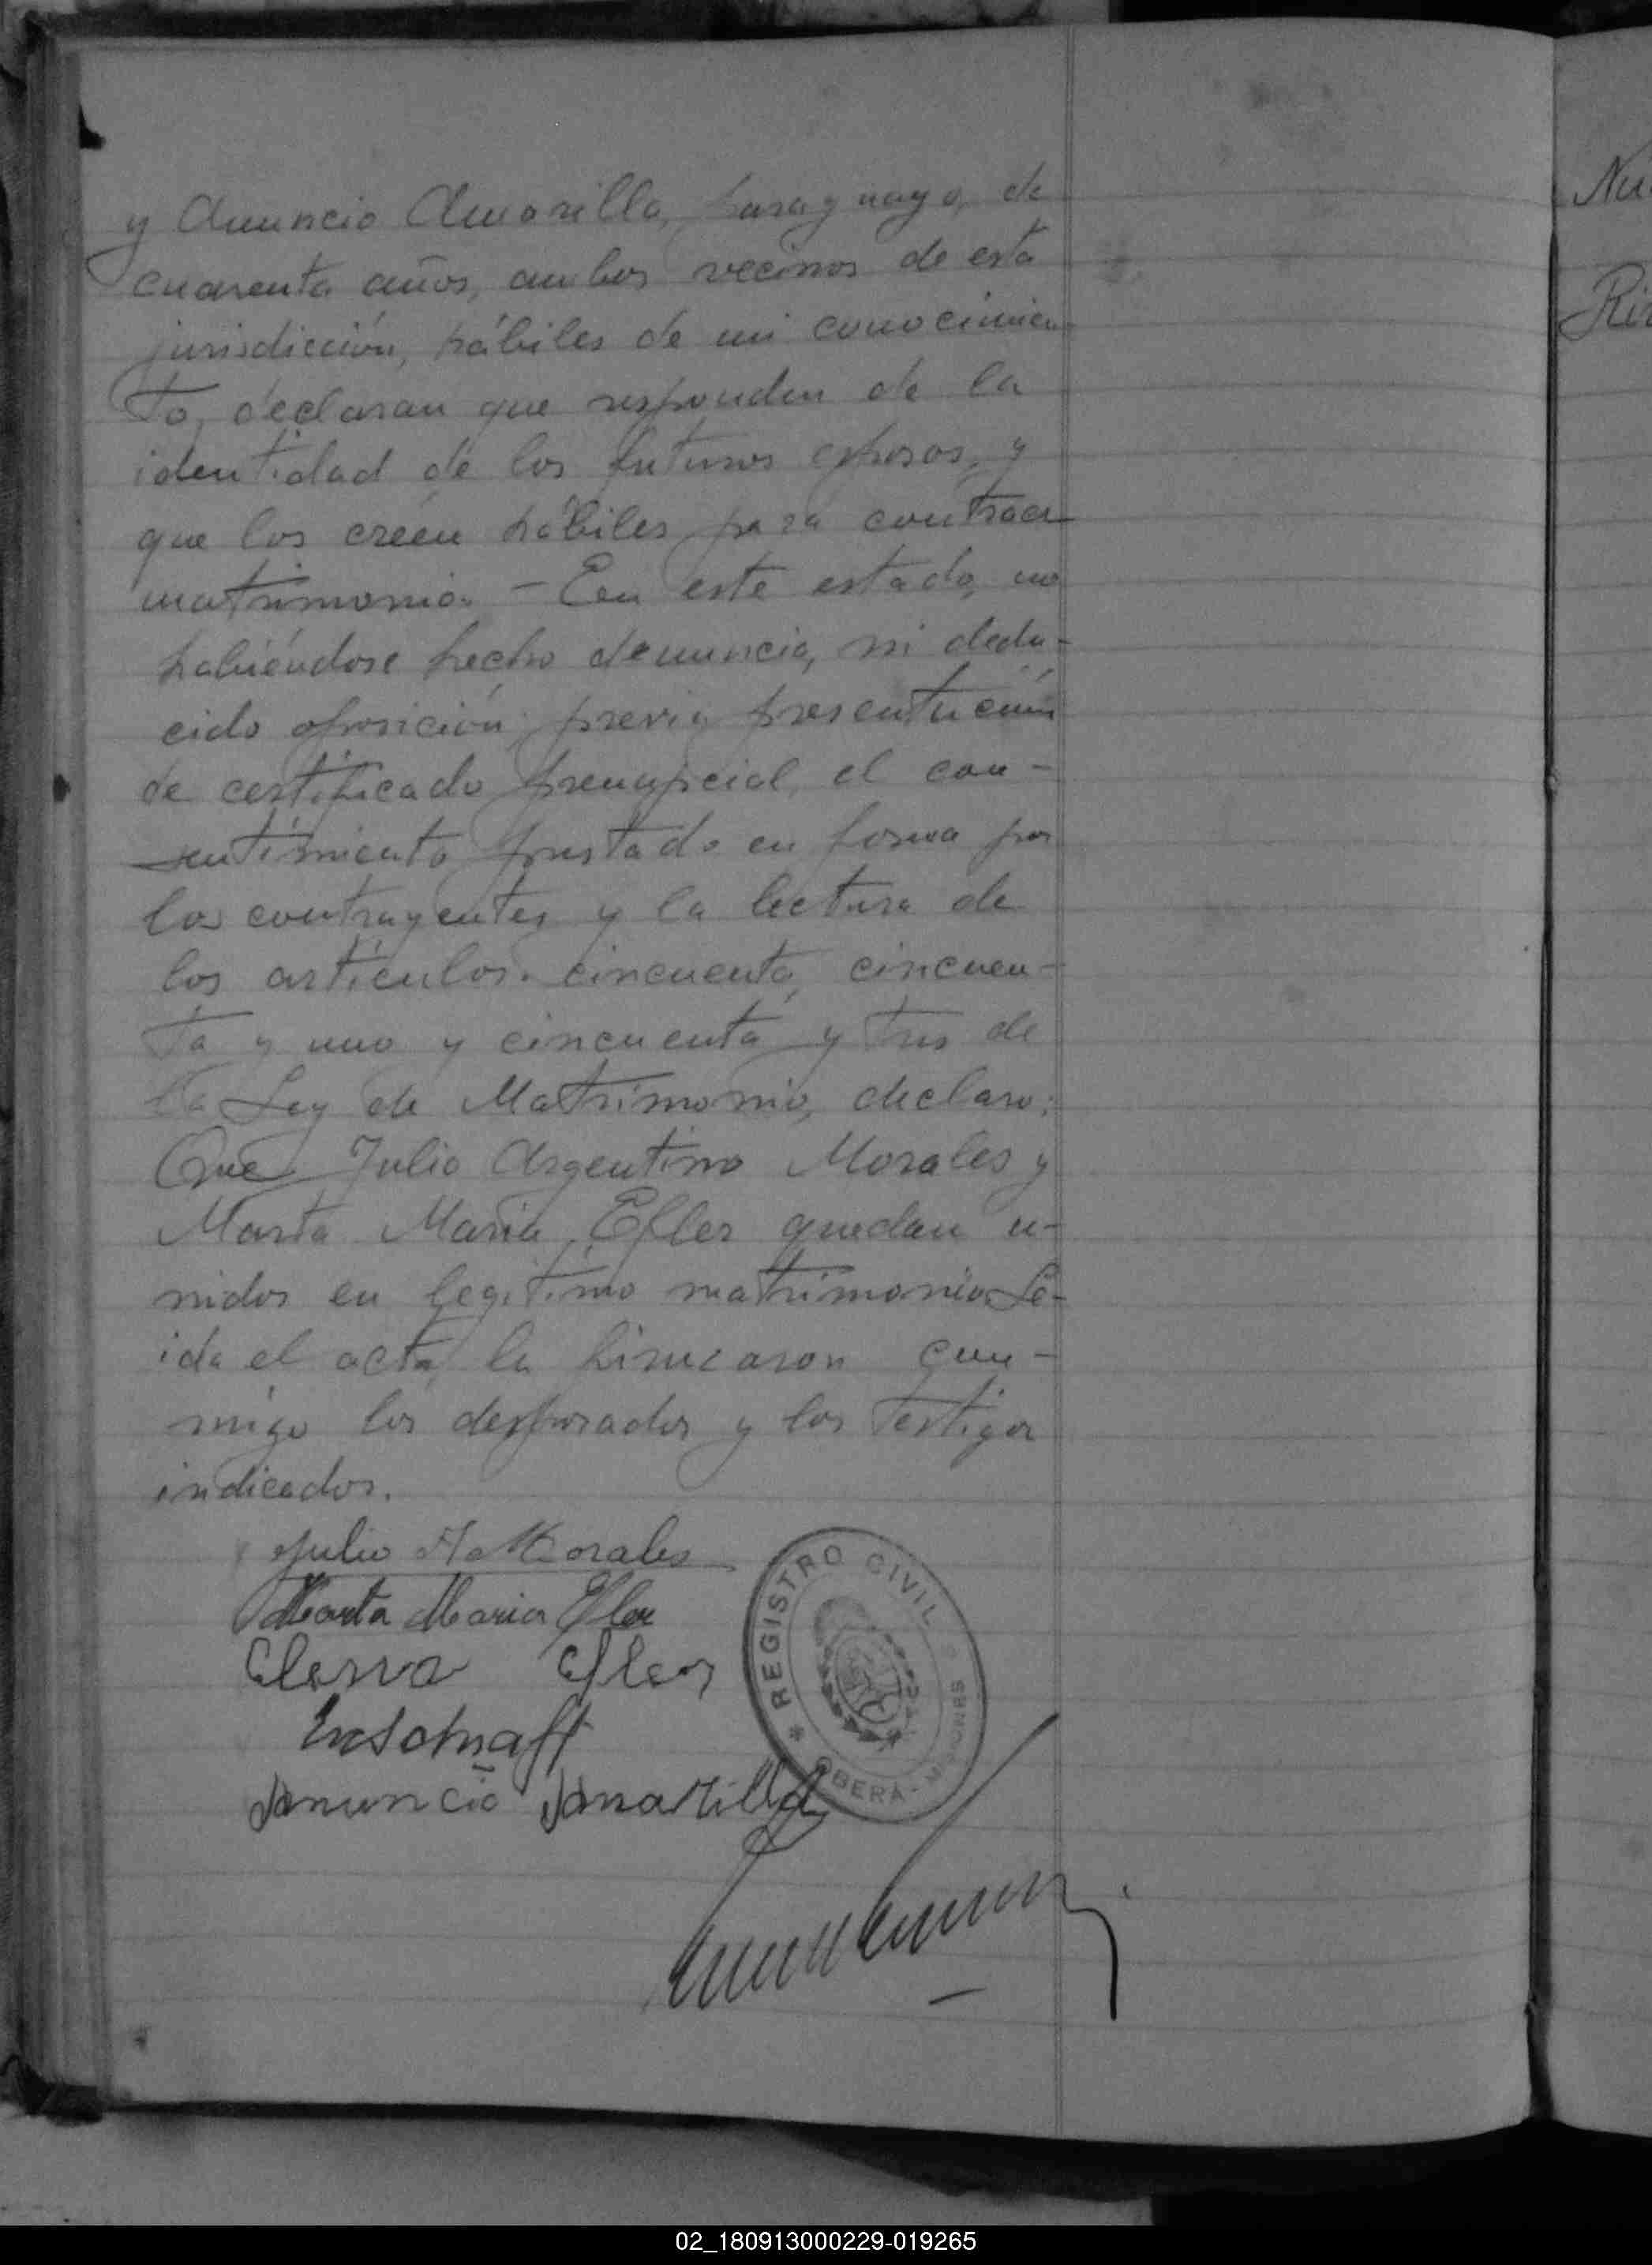 y Anuncio Amarilla, paraguayo, de
cuarenta años, ambos vecinos de esta
jurisdicción, hábiles de mi conocimien-
to, declaran que responden de la
identidad de los futuros esposos, y
que los creen hábiles para contraer
matrimonio. - En este estado, no
habiéndose hecho denuncia, ni dedu-
cido oposición, previa presentación
de certificado prenupcial, el con-
sentimiento prestado en forma por
los contrayentes y la lectura de
los artículos cincuenta, cincuen-
ta y uno y cincuenta y tres de
la Ley de Matrimonio, declaro:
Que Julio Argentino Morales y
Marta María Efler quedan u-
nidos en legítimo matrimonio. Le-
ida el acta, la firmaron con-
migo los desposados y los testigos
indicados.
Julio A. Morales
Marta Maria Efler
Efler
Anuncio Amarilla
* REGISTRO CIVIL *
OBERÁ - MISIONES
Nu
Ri
02_180913000229-019265